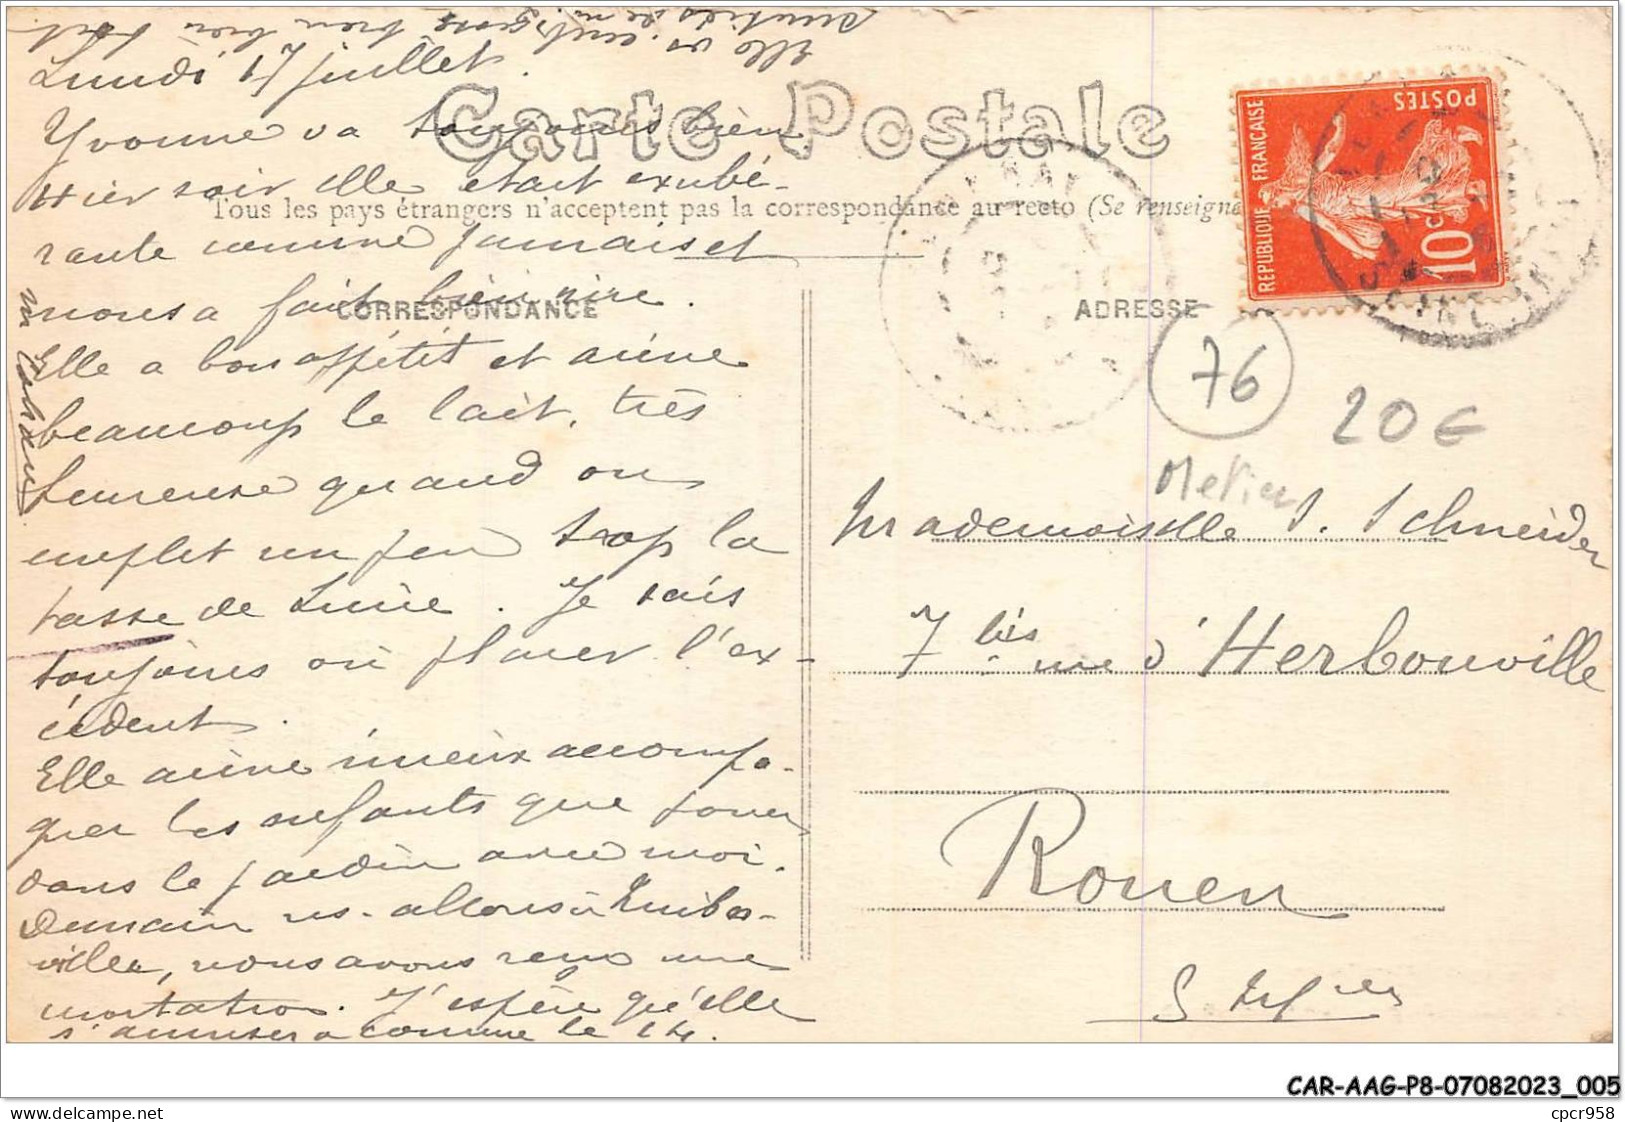 Elle vs
Lundi 17 juillet.
Carte Postale
Yvonne va toujours bien
Hier soir elle était exubé-
Tous les pays étrangers n'acceptent pas la correspondance au recto (Se renseigne
rante comme jamais et
nous a fait bien rire.
CORRESPONDANCE
Elle a bon appétit et aime
beaucoup le lait, très
heureuse quand on
emplit un peu trop la
tasse de Lucie. Je sais
toujours où placer l'ex-
cédent.
Elle aime mieux accompa-
gner les enfants que jouer
dans le jardin avec moi.
Demain ns. allons à
ville, nous avons reçu une
invitation. J'espère qu'elle
s'amusera comme le 14.
ADRESSE
REPUBLIQUE FRANÇAISE
POSTES
10c
76
20€
Metier
Mademoiselle S. Schneider
7 bis rue d'Herbouville
Rouen
S. Infres
CAR-AAG-P8-07082023_005
cpcr958